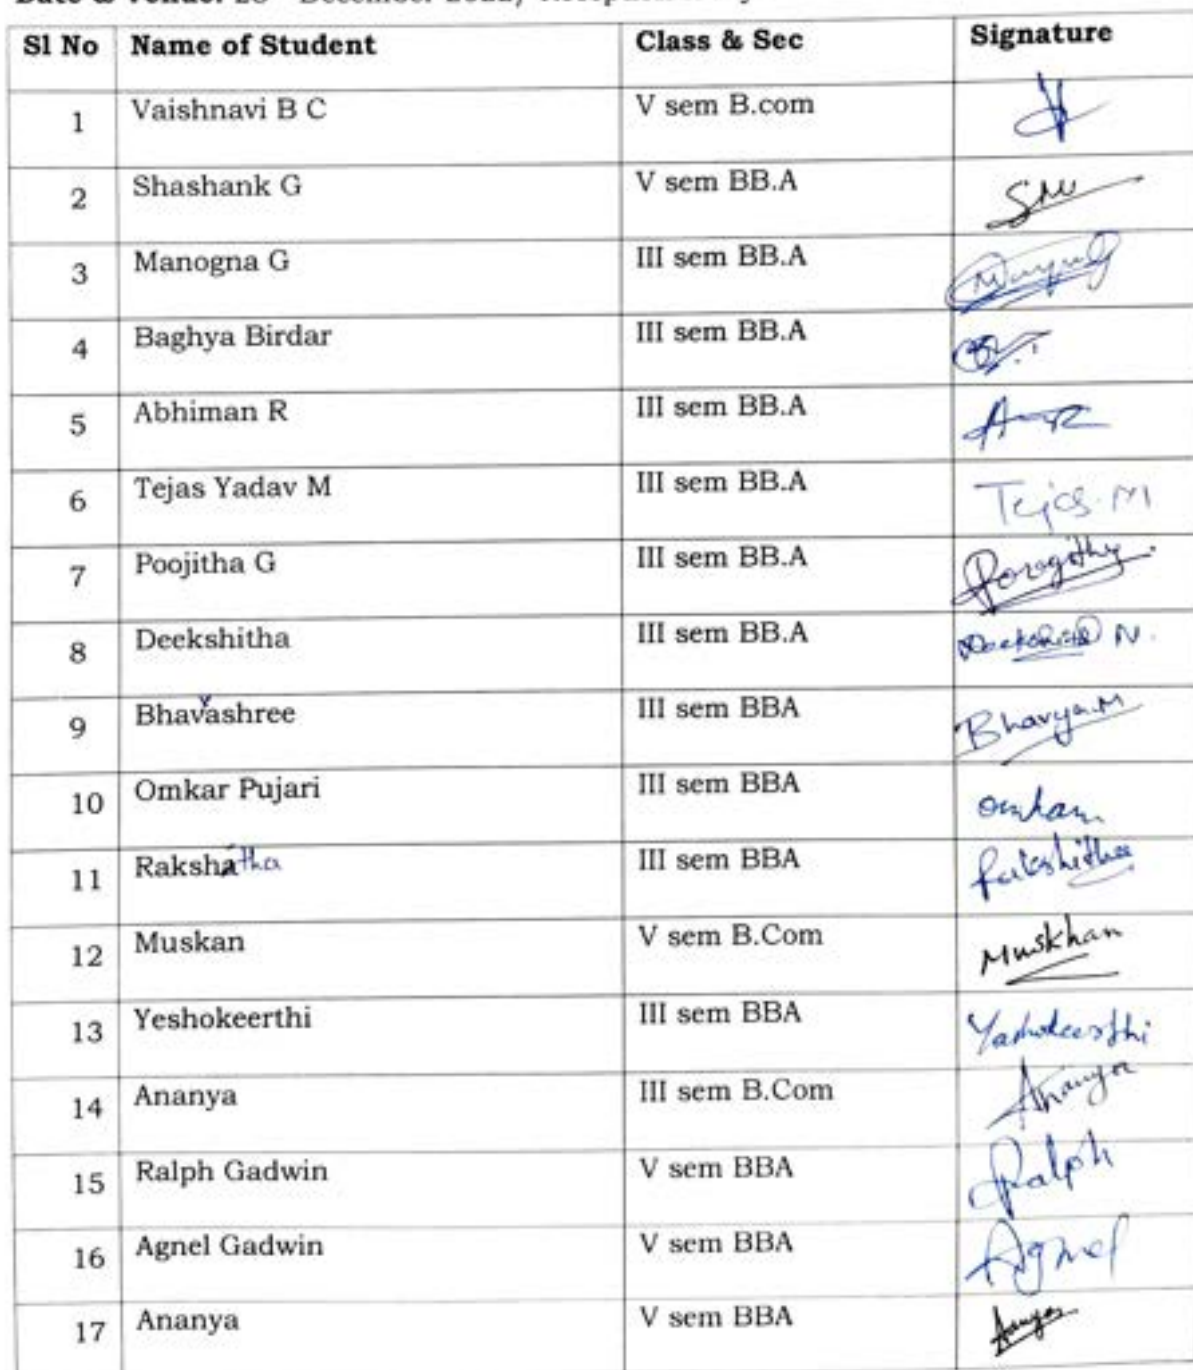 Sl No Name of Student Class & Sec Signature
1 Vaishnavi B C V sem B.com
2 Shashank G V sem BB.A
3 Manogna G III sem BB.A
4 Baghya Birdar III sem BB.A
5 Abhiman R III sem BB.A
6 Tejas Yadav M III sem BB.A Tejas.M
7 Poojitha G III sem BB.A
8 Deekshitha III sem BB.A Deekshitha N.
9 Bhavashree III sem BBA Bhavya.M
10 Omkar Pujari III sem BBA Omkar
11 Rakshatha III sem BBA Rakshitha
12 Muskan V sem B.Com Muskhan
13 Yeshokeerthi III sem BBA
14 Ananya III sem B.Com Ananya
15 Ralph Gadwin V sem BBA Ralph
16 Agnel Gadwin V sem BBA Agnel
17 Ananya V sem BBA